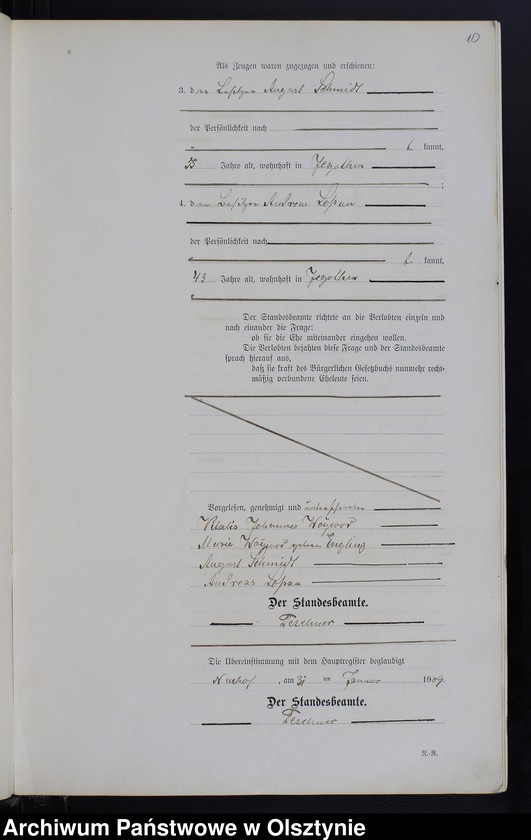 10
Als Zeugen waren zugezogen und erschienen:
3. der Besitzer August Schmidt
der Persönlichkeit nach
kannt,
55 Jahre alt, wohnhaft in Jegothen
;
4. der Besitzer Andreas Lopan
der Persönlichkeit nach
kannt,
43 Jahre alt, wohnhaft in Jegothen
Der Standesbeamte richtete an die Verlobten einzeln und
nach einander die Frage:
ob sie die Ehe miteinander eingehen wollen.
Die Verlobten bejahten diese Frage und der Standesbeamte
sprach hierauf aus,
daß sie kraft des Bürgerlichen Gesetzbuchs nunmehr recht-
mäßig verbundene Eheleute seien.
Vorgelesen, genehmigt und unterschrieben
Johannes Woÿwod
Marie Woÿwod geborene Engling
August Schmidt
Andreas Lopan
Der Standesbeamte.
Teschner
Die Übereinstimmung mit dem Hauptregister beglaubigt
Neuhof, am Januar 1909.
Der Standesbeamte.
Teschner
R.-R.
Archiwum Państwowe w Olsztynie